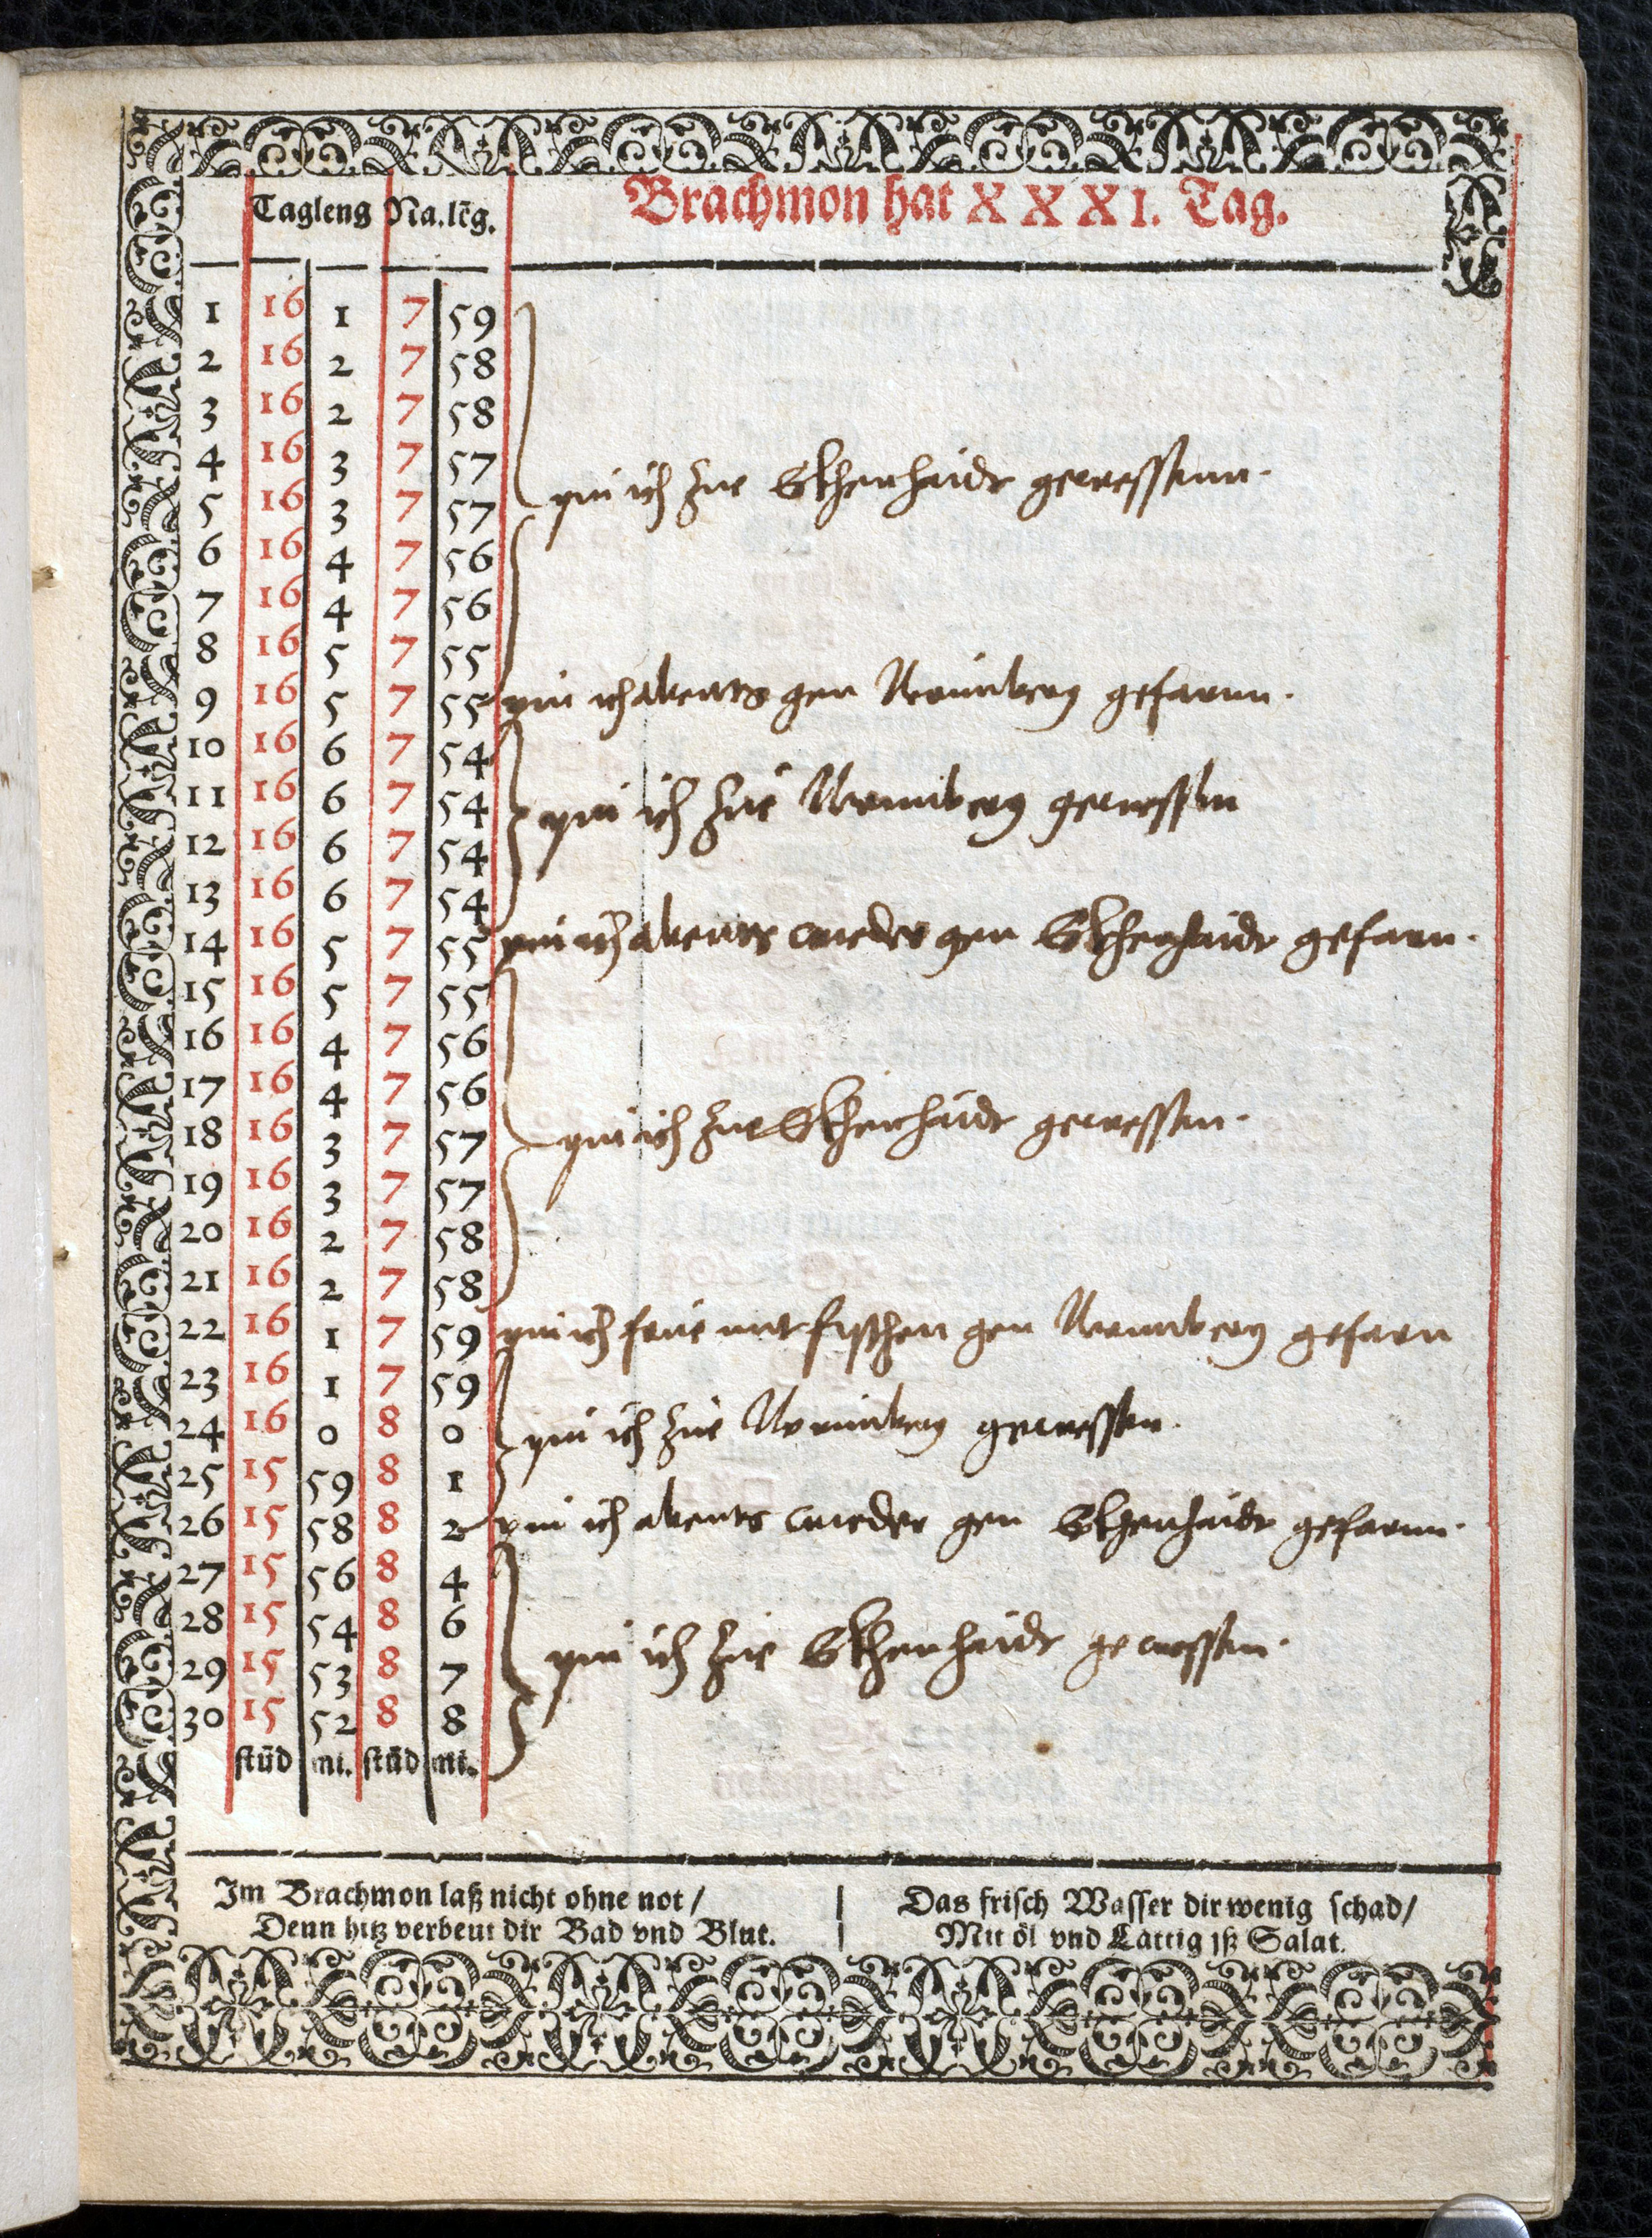 Tagleng Na.lēg. Brachmon hat XXXI. Tag.
1 16 1 7 59
2 16 2 7 58
3 16 2 7 58
4 16 3 7 57
5 16 3 7 57 pin ich zue Ekhenhaidt gewessenn.
6 16 4 7 56
7 16 4 7 56
8 16 5 7 55
9 16 5 7 55 pin ich abents gen Nurmberg gefarnn.
10 16 6 7 54
11 16 6 7 54 pin ich zue Nurmberg gewessen
12 16 6 7 54
13 16 6 7 54
14 16 5 7 55 pin ich abents wieder gen Ekhenhaidt gefarn.
15 16 5 7 55
16 16 4 7 56
17 16 4 7 56
18 16 3 7 57 pin ich zue Ekhenhaidt gewessen.
19 16 3 7 57
20 16 2 7 58
21 16 2 7 58
22 16 1 7 59 pin ich frue mit fischen gen Nurmberg gefarn
23 16 1 7 59
24 16 0 8 0 pin ich zue Nurmberg gewessen.
25 15 59 8 1
26 15 58 8 2 pin ich abents wieder gen Ekhenhaidt gefarnn.
27 15 56 8 4
28 15 54 8 6
29 15 53 8 7 pin ich zue Ekhenhaidt gewessen.
30 15 52 8 8
stūd mi. stūd mi.
Im Brachmon laß nicht ohne not /
Denn hitz verbeut dir Bad vnd Blut.
Das frisch Wasser dir wenig schad /
Mit öl vnd Lattig iß Salat.